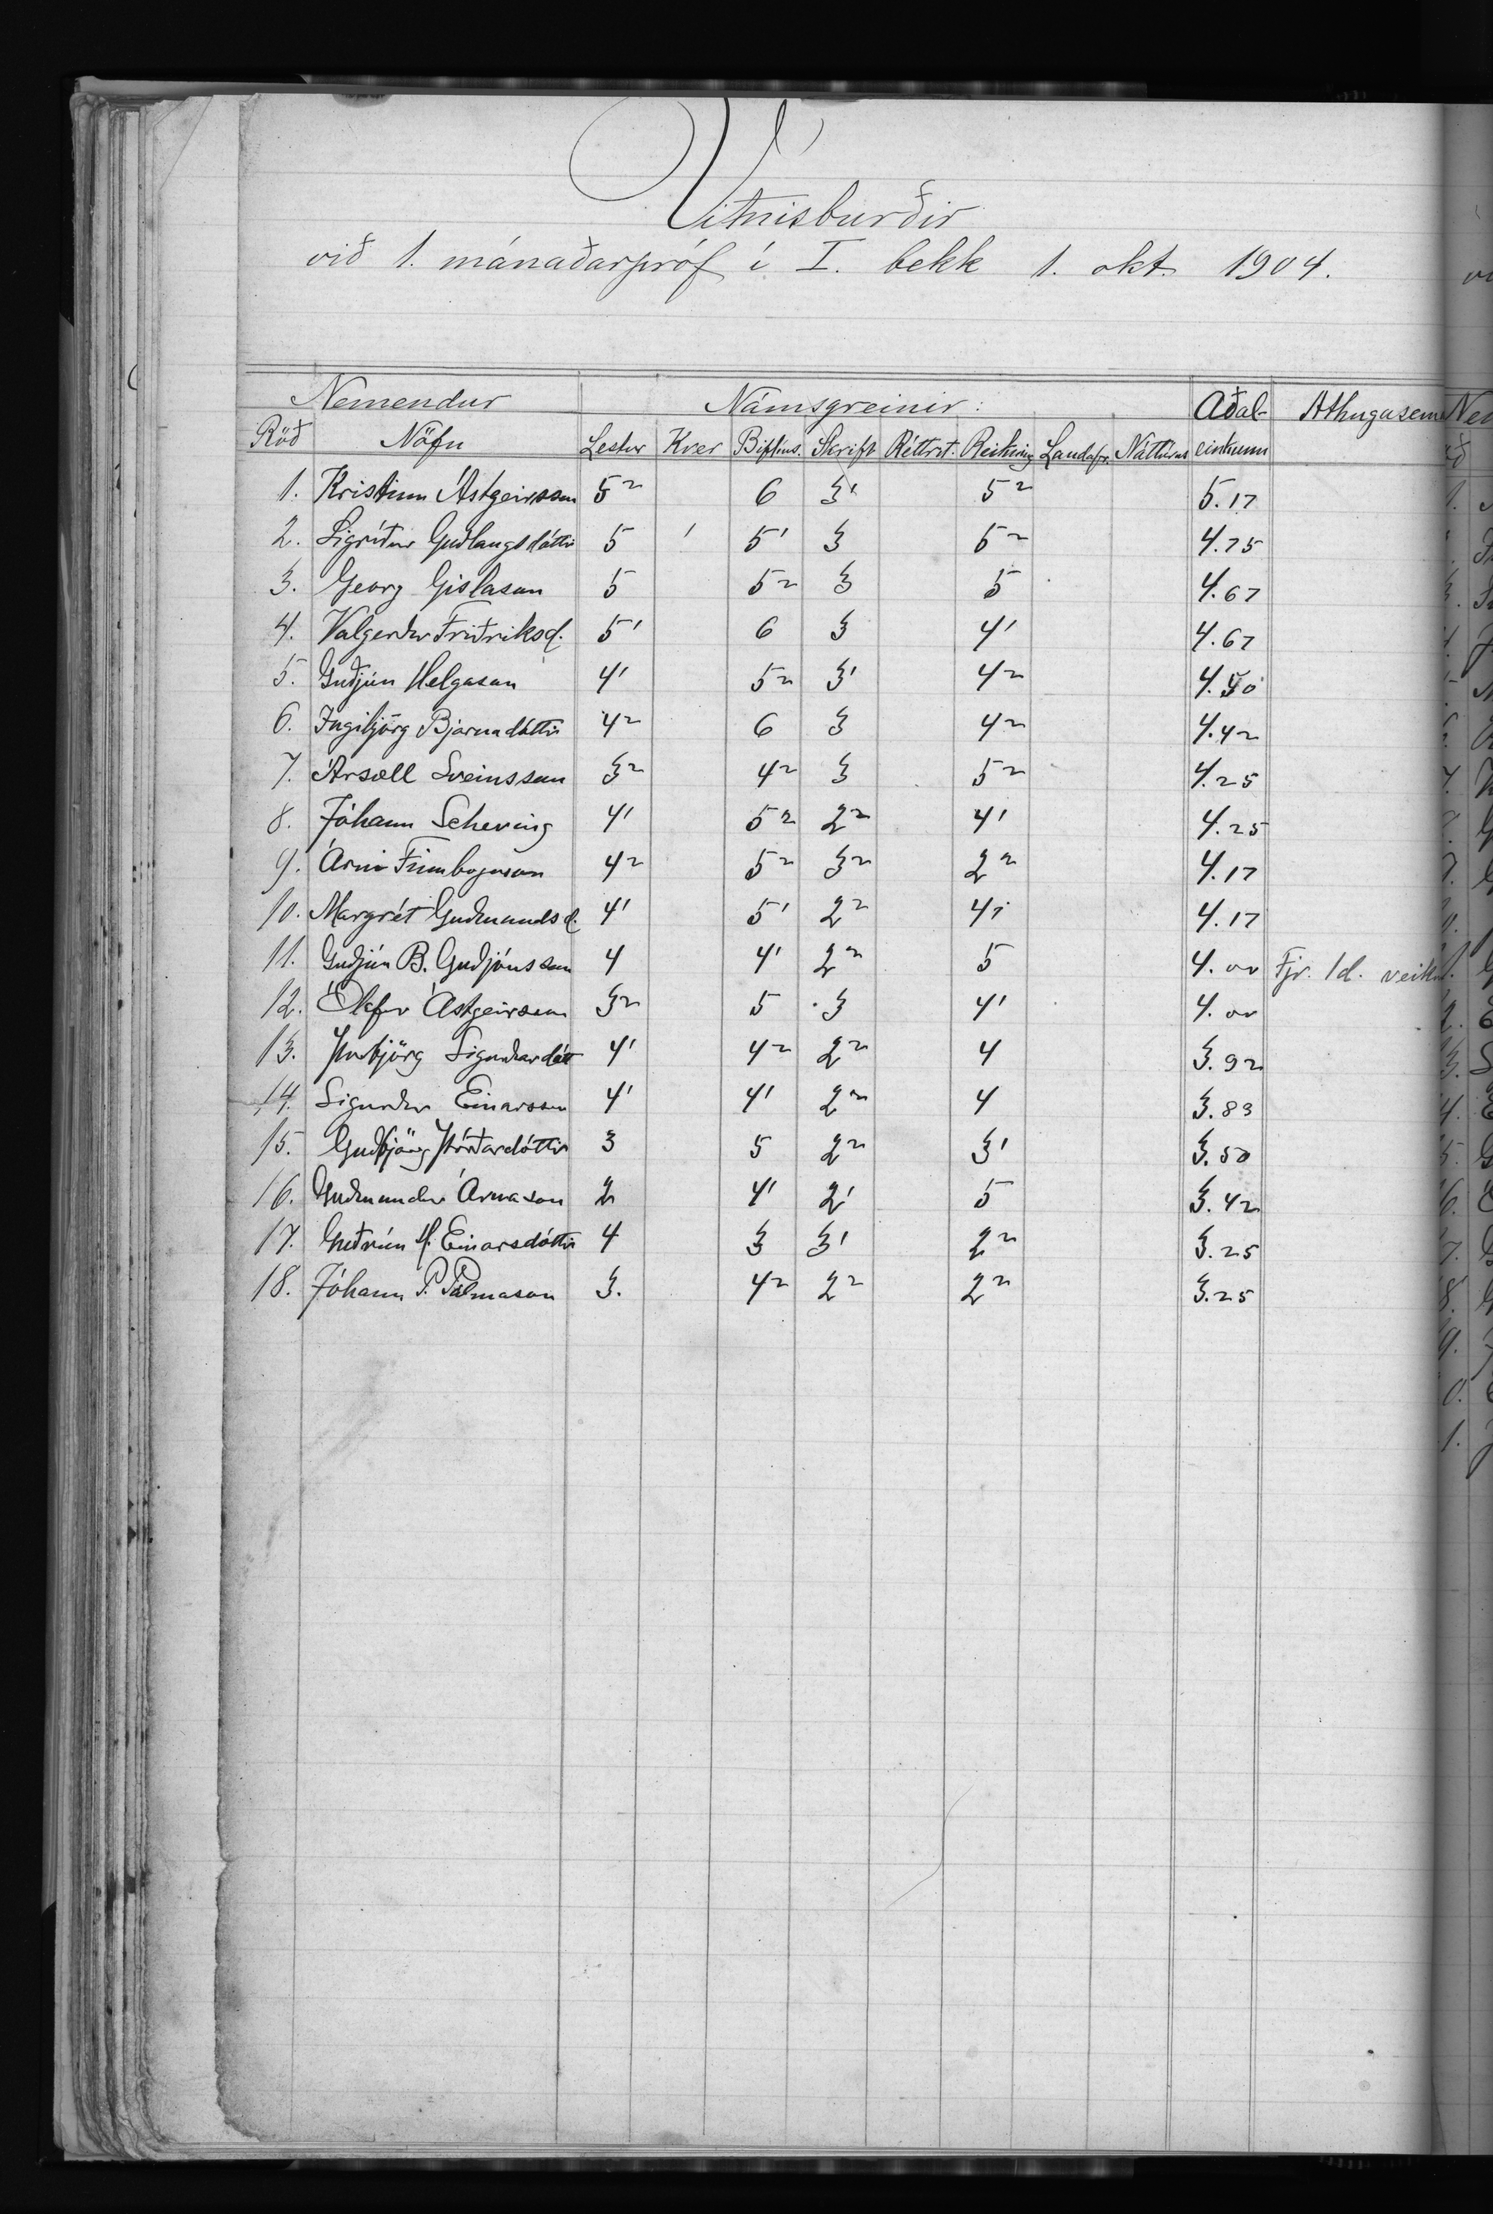 Vitnisburðir
við 1. mánaðarpróf í I. bekk 1. okt. 1904.
Nemendur Námsgreinir: Aðal- Athugasem
Röð Nöfn Lestur Kver Biflíus. Skrift Réttrit. Reikning Landafr. Náttúrus einkunn
1. Kristinn Ástgeirsson 5² 6 3' 5² 5.17
2. Sigríður Guðlaugsdóttir 5 ' 5' 3 5² 4.75
3. Georg Gíslason 5 5² 3 5 4.67
4. Valgerður Friðriksd. 5' 6 3 4' 4.67
5. Guðjón Helgason 4' 5² 3' 4² 4.50
6. Ingibjörg Bjarnadóttir 4² 6 3 4² 4.42
7. Ársæll Sveinsson 3² 4² 3 5² 4.25
8. Jóhann Scheving 4' 5² 2² 4' 4.25
9. Árni Finnbogason 4² 5² 3² 2² 4.17
10. Margrét Guðmundsd. 4' 5' 2² 4' 4.17
11. Guðjón B. Guðjónsson 4 4' 2² 5 4.00 Fjv. 1d. veik
12. Ólafur Ástgeirsson 3² 5 3 4' 4.00
13. Þorbjörg Sigurðardótt 4' 4² 2² 4 3.92
14. Sigurður Einarsson 4' 4' 2² 4 3.83
15. Guðbjörg Þórðardóttir 3 5 2² 3' 3.50
16. Guðmundur Árnason 2 4' 2' 5 3.42
17. Guðrún H. Einarsdóttir 4 3 3' 2² 3.25
18. Jóhann P. Pálmason 3. 4² 2² 2² 3.25